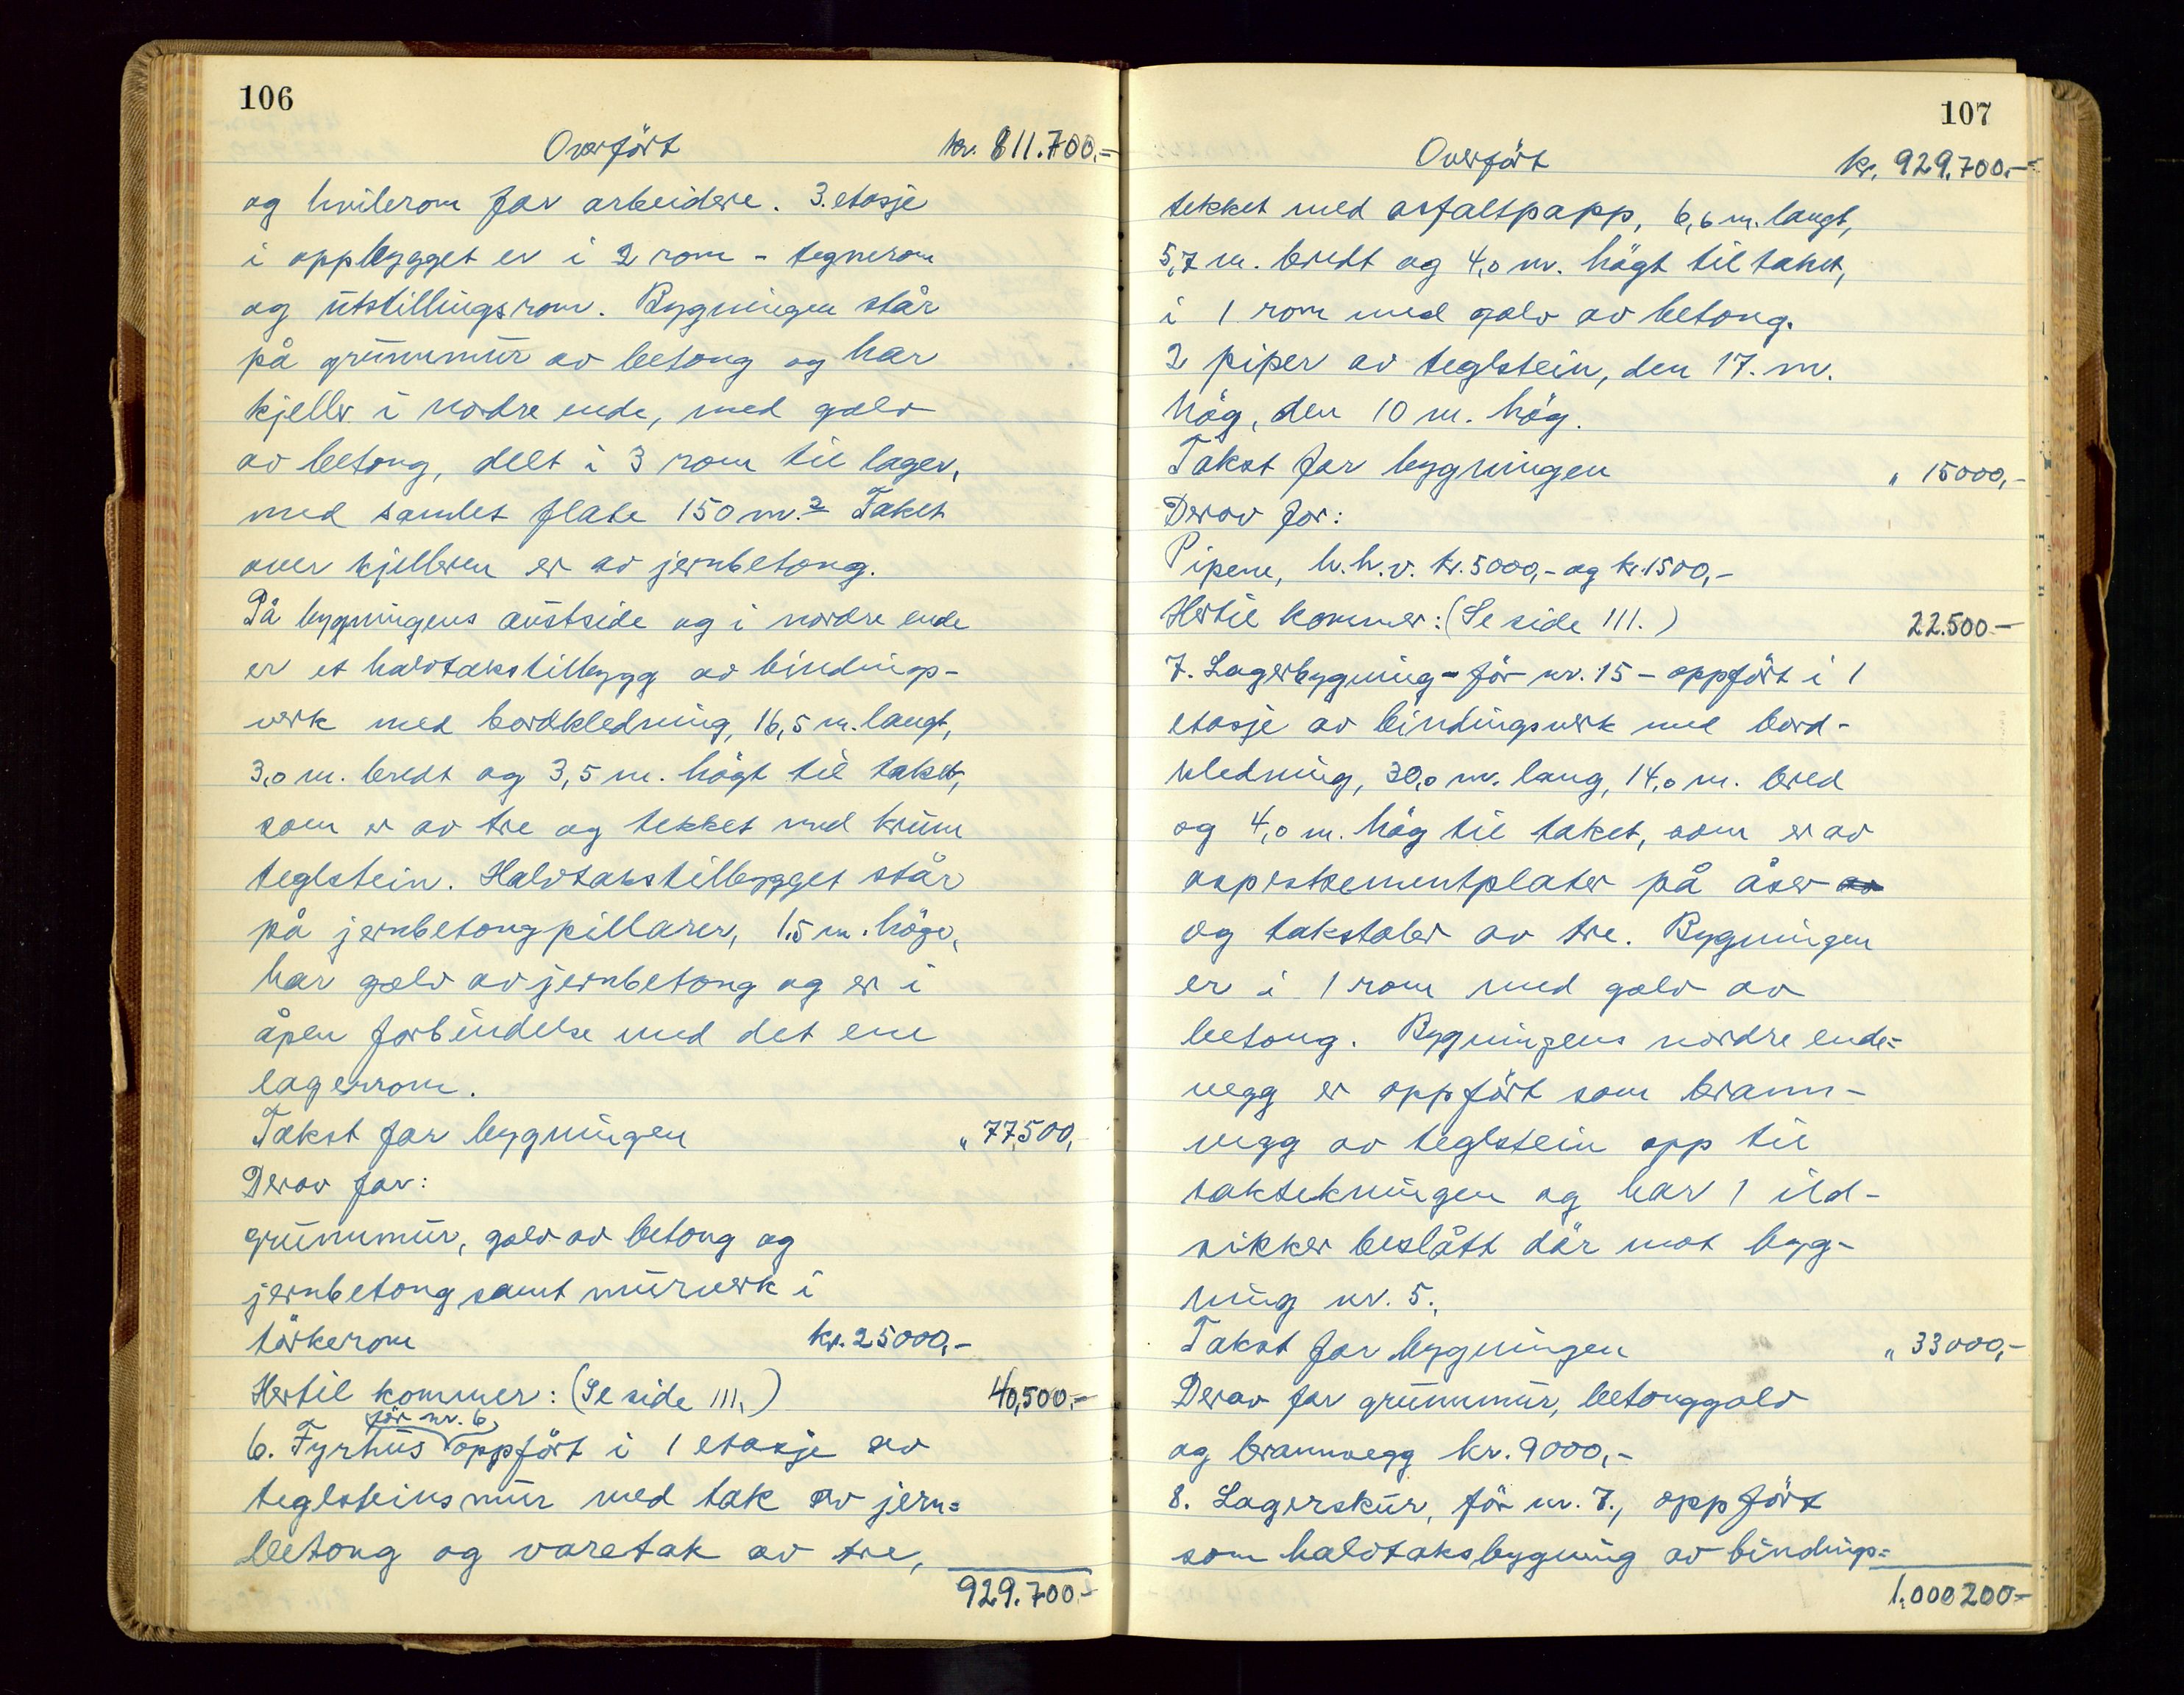 106
Overfört kr. 811.700,-
og hvilerom for arbeidere. 3. etasje
i oppbygget er i 2 rom - tegnerom
og utstillingsrom. Bygningen står
på grunnmur av betong og har
kjeller i nordre ende, med golv
av betong, delt i 3 rom til lager,
med samlet flate 150 m.² Taket
over kjelleren er av jernbetong.
På bygningens austside og i nordre ende
er et halvtakstilbygg av bindings-
verk med bordkledning, 16,5 m. langt,
3,0 m. bredt og 3,5 m. högt til taket,
som er av tre og tekket med krum
teglstein. Halvtakstilbygget står
på jernbetongpillarer, 1.5 m. höge,
har golv av jernbetong og er i
åpen forbindelse med det ene
lagerrom.
Takst for bygningen „ 77,500,-
Derav for:
grunnmur, golv av betong og
jernbetong samt murverk i
törkerom kr. 25000,-
Hertil kommer: (Se side 111.) 40,500.-
för nr. 6,
6. Fyrhus oppfört i 1 etasje av
teglsteinsmur med tak av jern=
betong og varetak av tre,
929.700.-
107
Overfört kr. 929.700.-
tekket med asfaltpapp, 6,6 m. langt,
5,7 m. bredt og 4,0 m. högt til taket,
i 1 rom med golv av betong.
2 piper av teglstein, den 17. m.
hög, den 10 m. hög.
Takst for bygningen „ 15000,-
Derav for:
Pipene, h.h.v. kr. 5000,- og kr. 1500,-
Hertil kommer: (Se side 111.) 22.500-
7. Lagerbygning - för nr. 15 - oppfört i 1
etasje av bindingsverk med bord-
kledning, 30,0 m. lang, 14,0 m. bred
og 4,0 m. hög til taket, som er av
aspestsementplater på åser av
og takstoler av tre. Bygningen
er i 1 rom med golv av
betong. Bygningens nordre ende=
vegg er oppfört som brann-
vegg av teglstein opp til
taktekningen og har 1 ild-
sikker beslått dör mot byg-
ning nr. 5.
Takst for bygningen „ 33000,-
Derav for grunnmur, betonggolv
og brannvegg kr. 9000,-
8. Lagerskur, för nr. 7., oppfört
som halvtaksbygning av bindings=
1.000200-